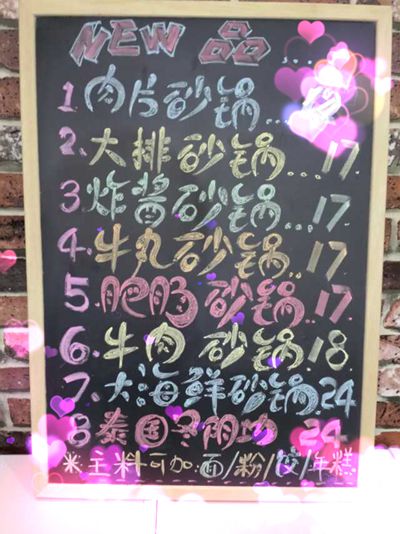 NEW 品...
1 肉片砂锅...
2.大排砂锅...17
3 炸酱砂锅...17
4.牛丸砂锅...17
5.肥肠砂锅...17
6.牛肉砂锅.18
7.大海鲜砂锅.24
8 泰国冬阴功 24
※主料可加:面/粉/饺/年糕